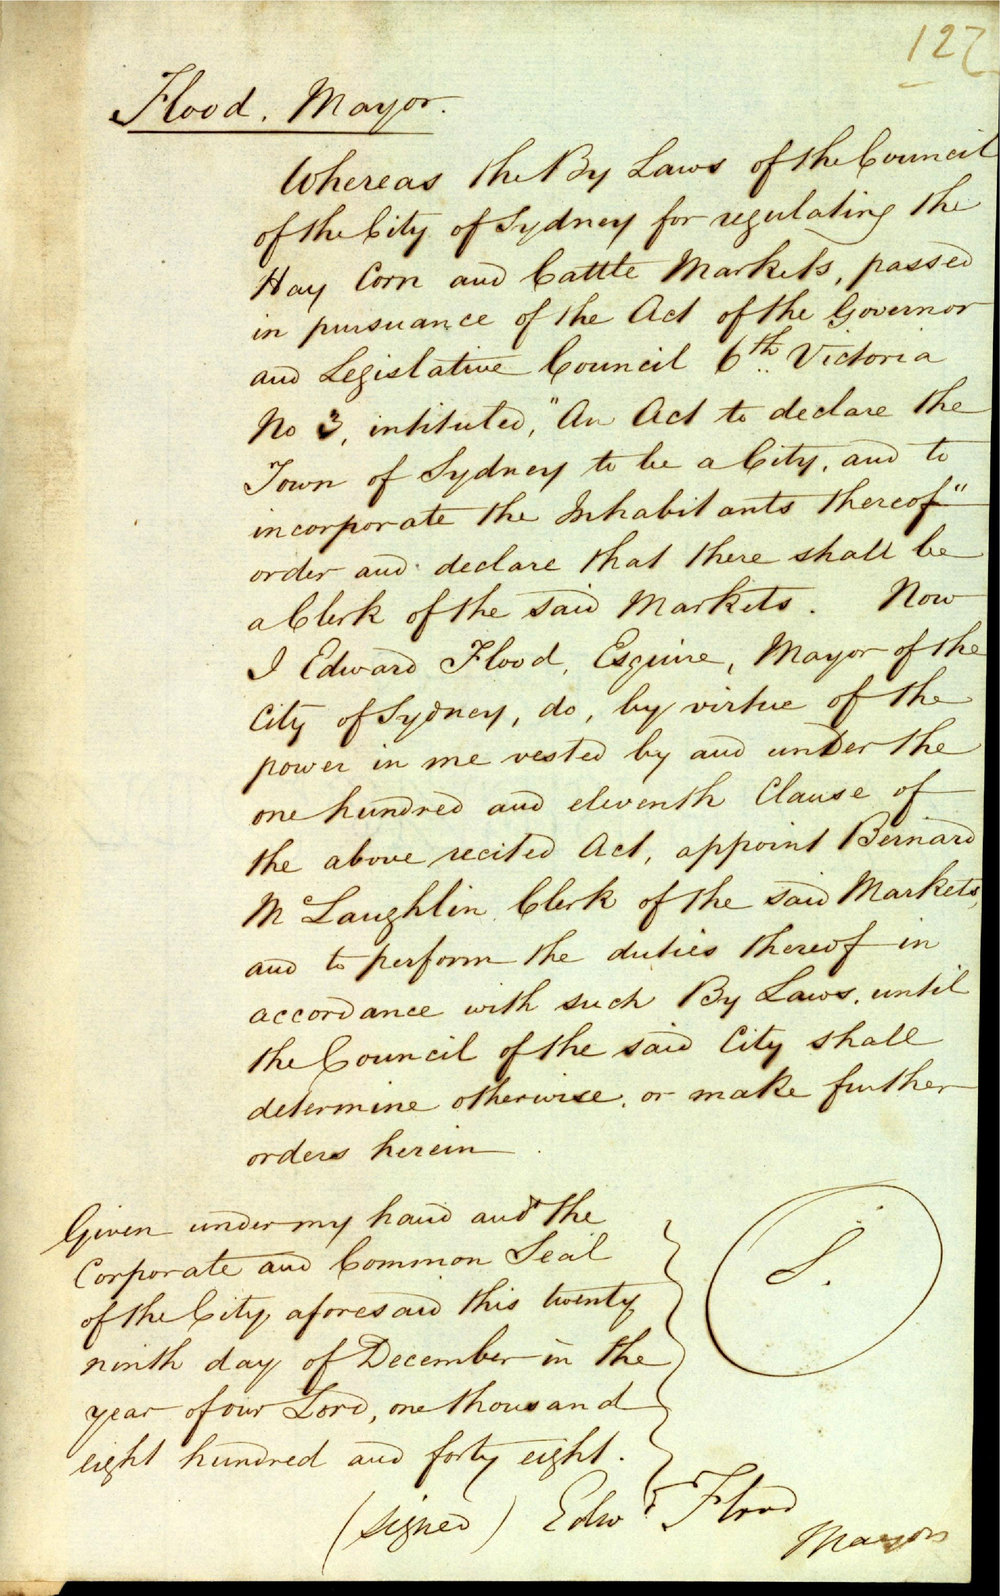 127
Flood, Mayor.
Whereas the By Laws of the Council
of the City of Sydney for regulating the
Hay Corn and Cattle Markets, passed
in pursuance of the Act of the Governor
and Legislative Council 6th Victoria
No 3, intituled, "An Act to declare the
Town of Sydney to be a City, and to
incorporate the Inhabitants thereof"
order and declare that there shall be
a Clerk of the said Markets. Now
I Edward Flood, Esquire, Mayor of the
City of Sydney, do, by virtue of the
power in me vested by and under the
one hundred and eleventh Clause of
the above recited Act, appoint Bernard
Mc Laughlin Clerk of the said Markets,
and to perform the duties thereof in
accordance with such By Laws, until
the Council of the said City shall
determine otherwise, or make further
orders herein
Given under my hand and the
Corporate and Common Seal
of the City aforesaid this twenty
ninth day of December in the
year of our Lord, one thousand
eight hundred and forty eight.
S.
(signed) Edwd Flood
Mayor